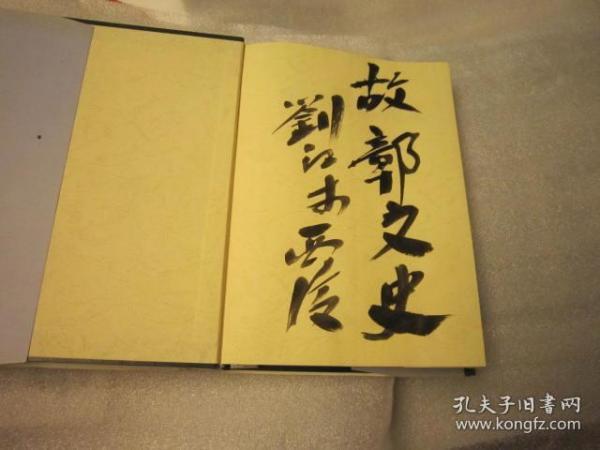 故鄣文史
劉江于西泠
孔夫子旧書网
www.kongfz.com